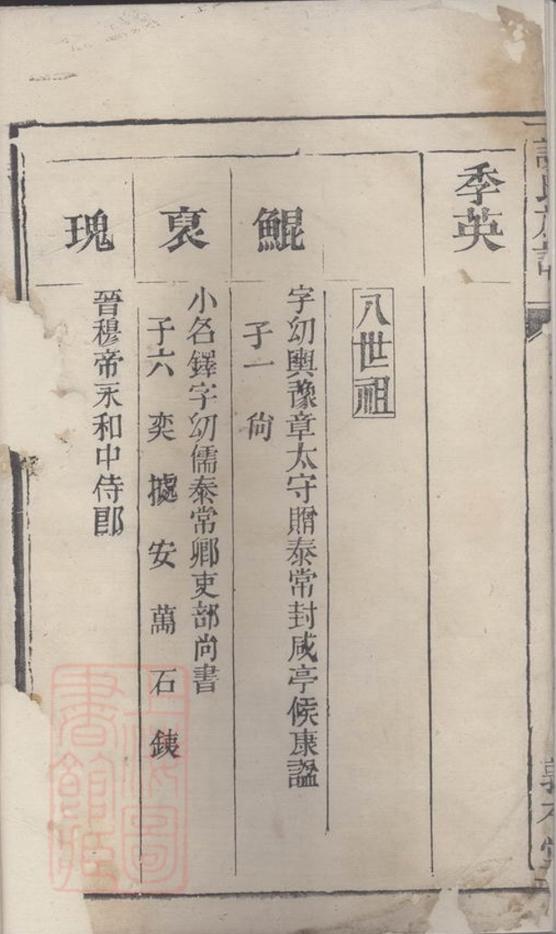 季英
八世祖
鯤
字幼輿豫章太守贈泰常封咸亭候康謚
子一 尙
裒
小名鐸字幼儒泰常卿吏部尚書
子六 奕 㨿 安 萬 石 鐵
瑰
晉穆帝永和中侍郎